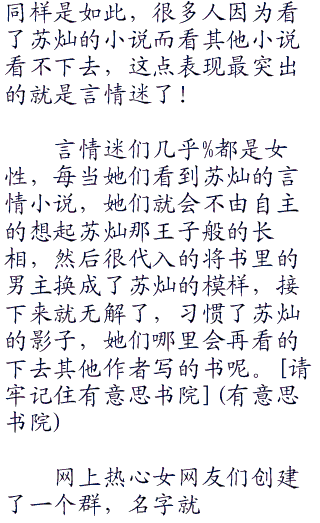 同样是如此，很多人因为看
了苏灿的小说而看其他小说
看不下去，这点表现最突出
的就是言情迷了！
言情迷们几乎%都是女
性，每当她们看到苏灿的言
情小说，她们就会不由自主
的想起苏灿那王子般的长
相，然后很代入的将书里的
男主换成了苏灿的模样，接
下来就无解了，习惯了苏灿
的影子，她们哪里会再看的
下去其他作者写的书呢。[请
牢记住有意思书院](有意思
书院)
网上热心女网友们创建
了一个群，名字就